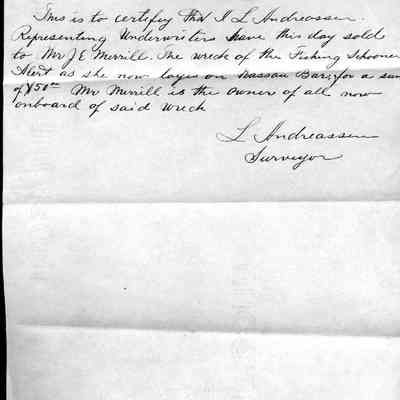 This is to certefey that I L Andreassen.
Representing Underwriters have this day sold
to Mr J E Merrill. The wreck of the Fishing Schooner
Alert as she now layes on Nassau Bar; for a sum
of $50 00 Mr Merrill is the owner of all now
onboard of said wreck
L Andreassen
Surveyor